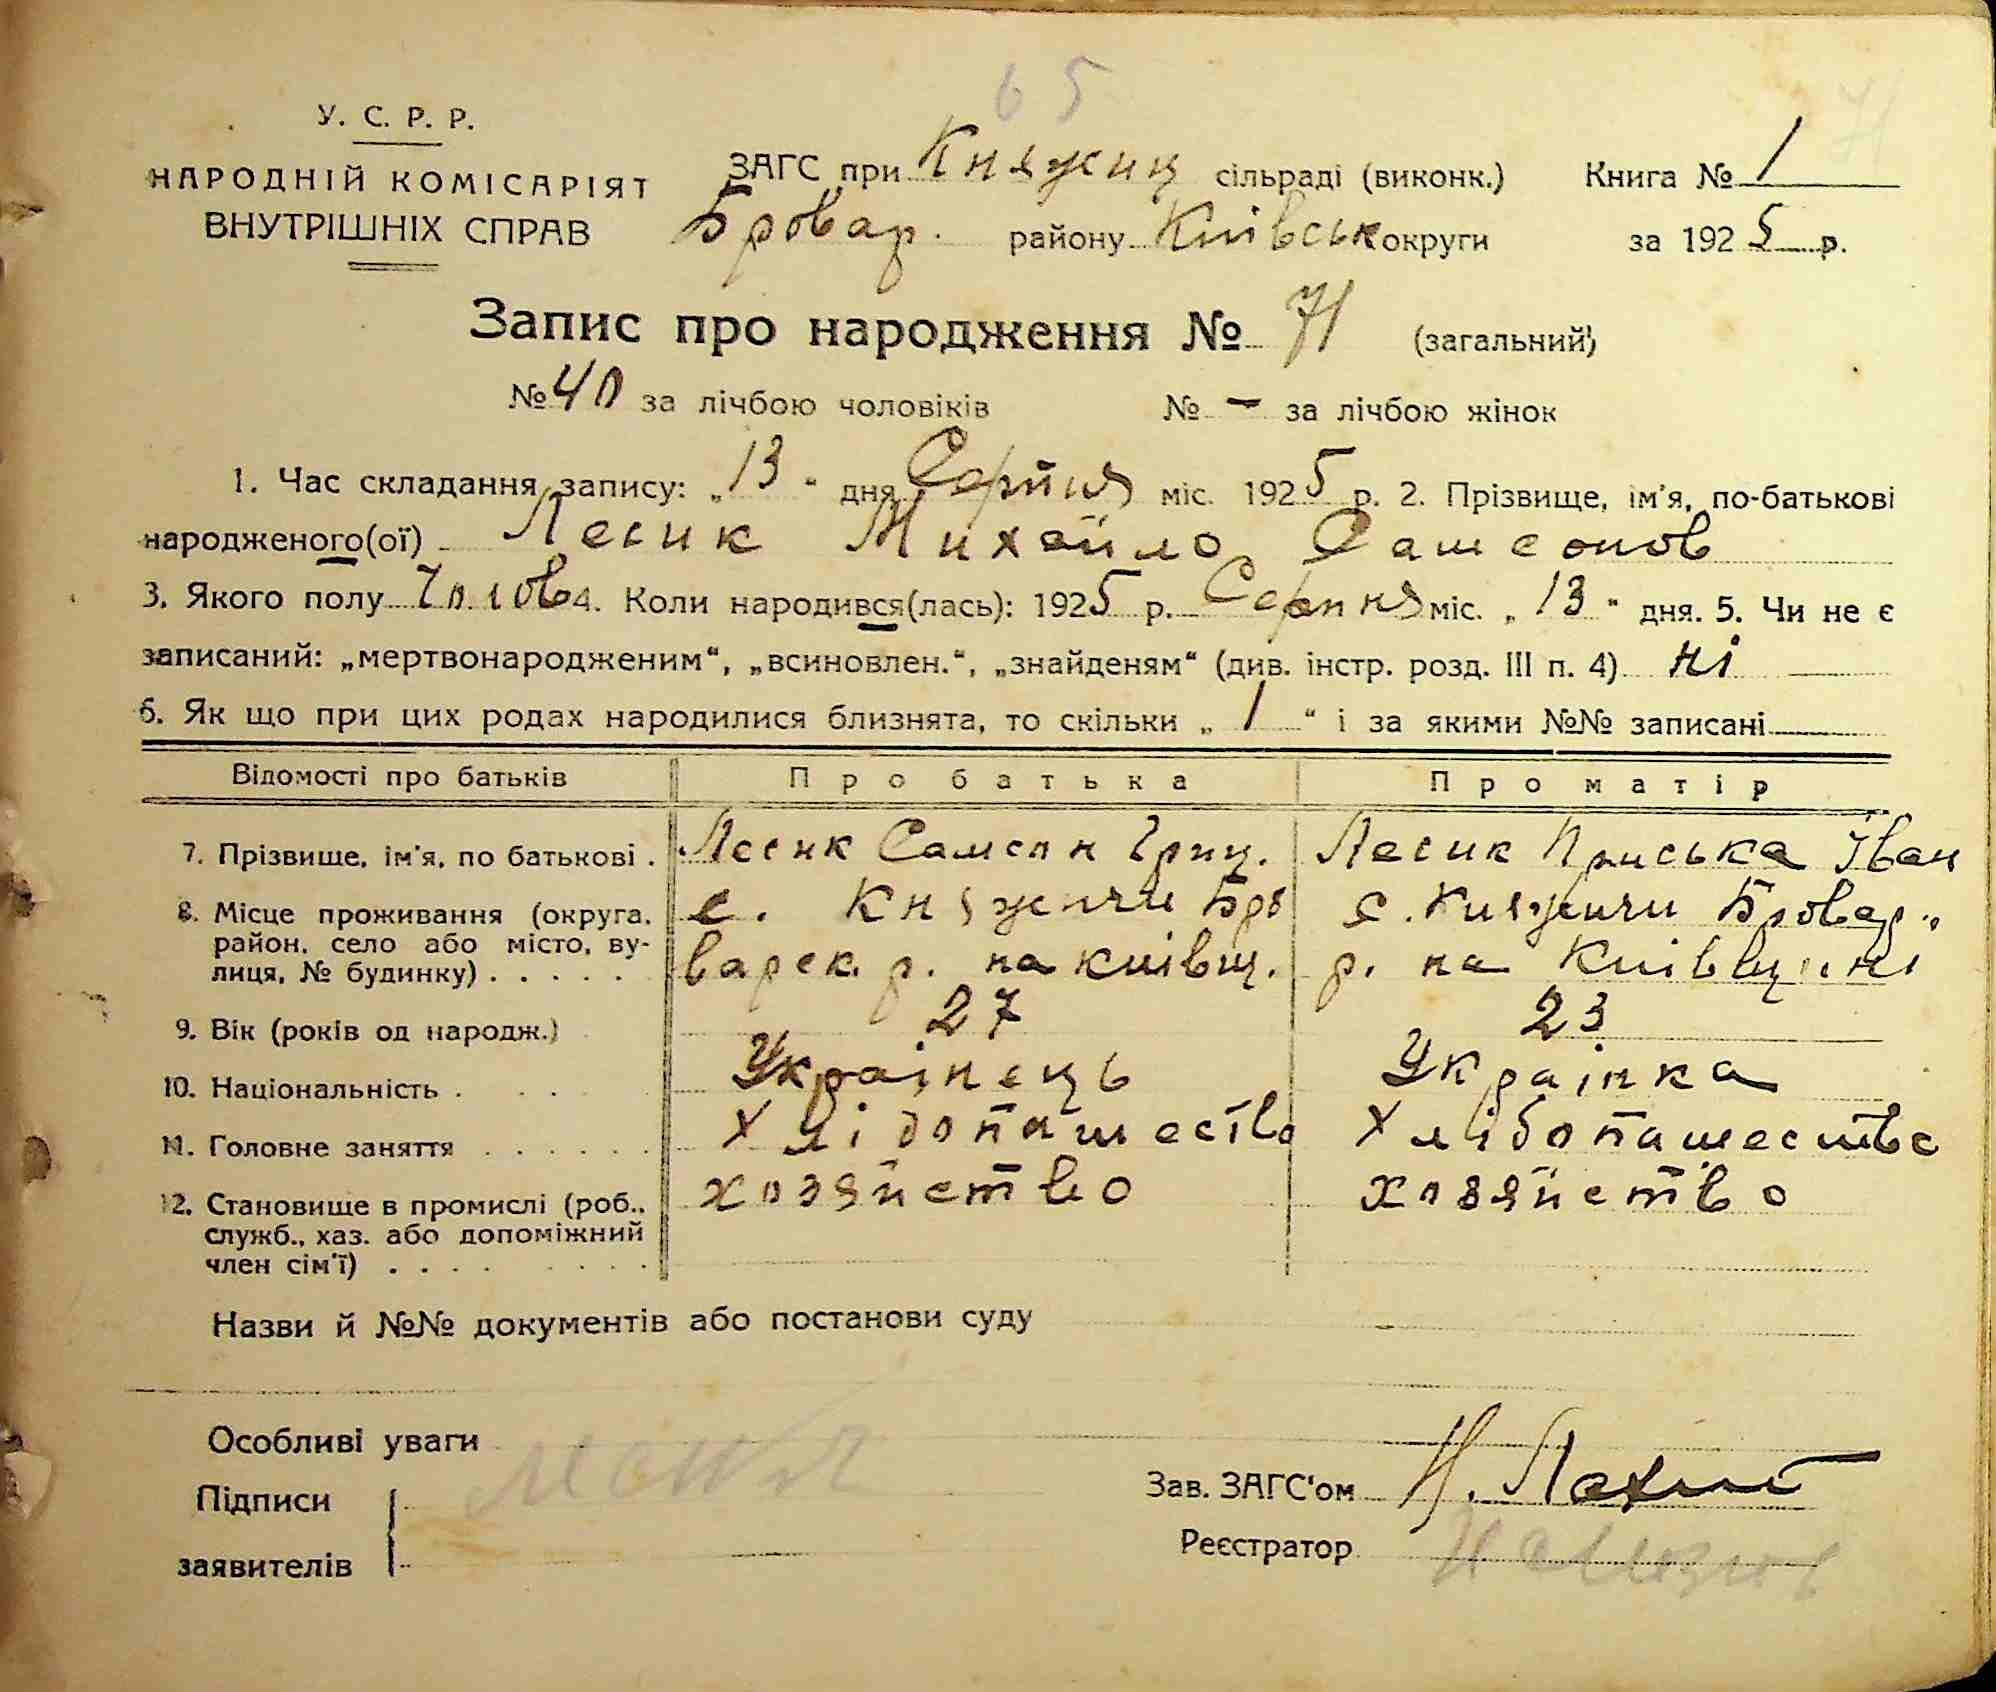 65
У. С. Р. Р.
НАРОДНІЙ КОМІСАРІЯТ
ВНУТРІШНІХ СПРАВ
ЗАГС при Княжиц сільраді (виконк.) Книга № 1 71
Бровар. району Київськ округи за 1925 р.
Запис про народження № 71 (загальний)
№ 40 за лічбою чоловіків № - за лічбою жінок
1. Час складання запису: „13“ дня Серпня міс. 1925 р. 2. Прізвище, ім'я, по-батькові
народженого(ої) Лесик Михайло Самсонов
3. Якого полу Чолов 4. Коли народився(лась): 1925 р. Серпня міс. „13“ дня. 5. Чи не є
записаний: „мертвонародженим“, „всиновлен.“, „знайденям“ (див. інстр. розд. III п. 4) ні
6. Як що при цих родах народилися близнята, то скільки „1“ і за якими №№ записані
Відомості про батьків Про батька Про матір
7. Прізвище, ім'я, по батькові . Лесик Самсон Григ. Лесик Приська Іван
8. Місце проживання (округа, с. Княжичи Бро с. Княжичи Бровар.
район, село або місто, ву-
лиця, № будинку) . . . . . варск. р. на київщ. р. на Київщині
9. Вік (років од народж.) 27 23
10. Національність . . . Українець Українка
11. Головне заняття . . . . . . Хлібопашество Хлібопашество
12. Становище в промислі (роб., хозяйство хозяйство
служб., хаз. або допоміжний
член сім'ї) . . . . . . . .
Назви й №№ документів або постанови суду -
Особливі уваги
Підписи
заявителів
Зав. ЗАГС'ом Н.
Реєстратор